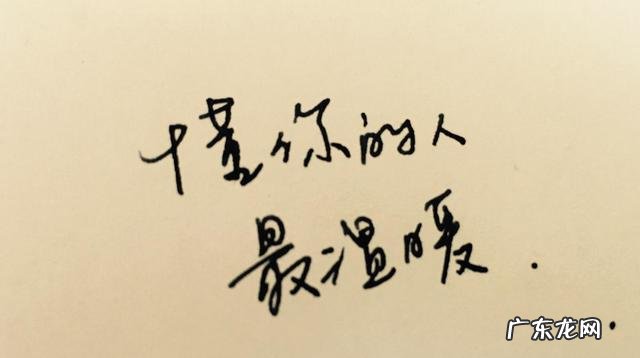 懂你的人
最温暖.
广东龙网.